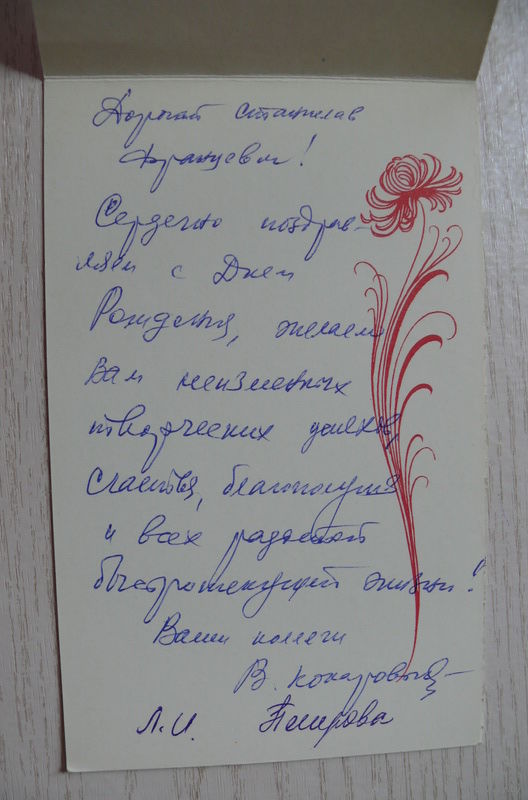 Дорогой Станислав
Францевич!
Сердечно поздрав-
ляем с Днем
Рожденья, желаем
Вам неизменных
творческих успехов,
счастья, благополучия
и всех радостей
быстротекущей жизни!
Ваши коллеги
В.
Л.И.